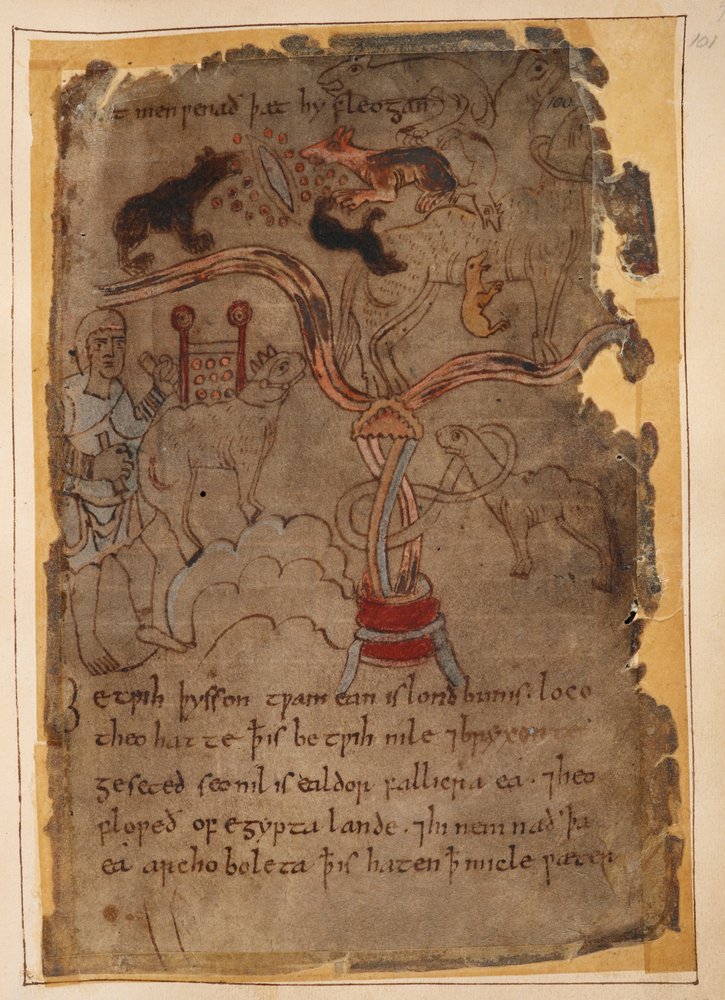 101
100
æt men ƿenað þæt hy fleogan
Betƿih þysson tƿam ean is londbunis. loco
theo hatte ꝥ is betƿih nile ⁊ bryxonte
geseted seo nil is ealdor fallicra ea. ⁊ heo
floƿeð of egypta lande. ⁊ hi nemnað þa
ea archoboleta ꝥ is haten ꝥ micle ƿæter